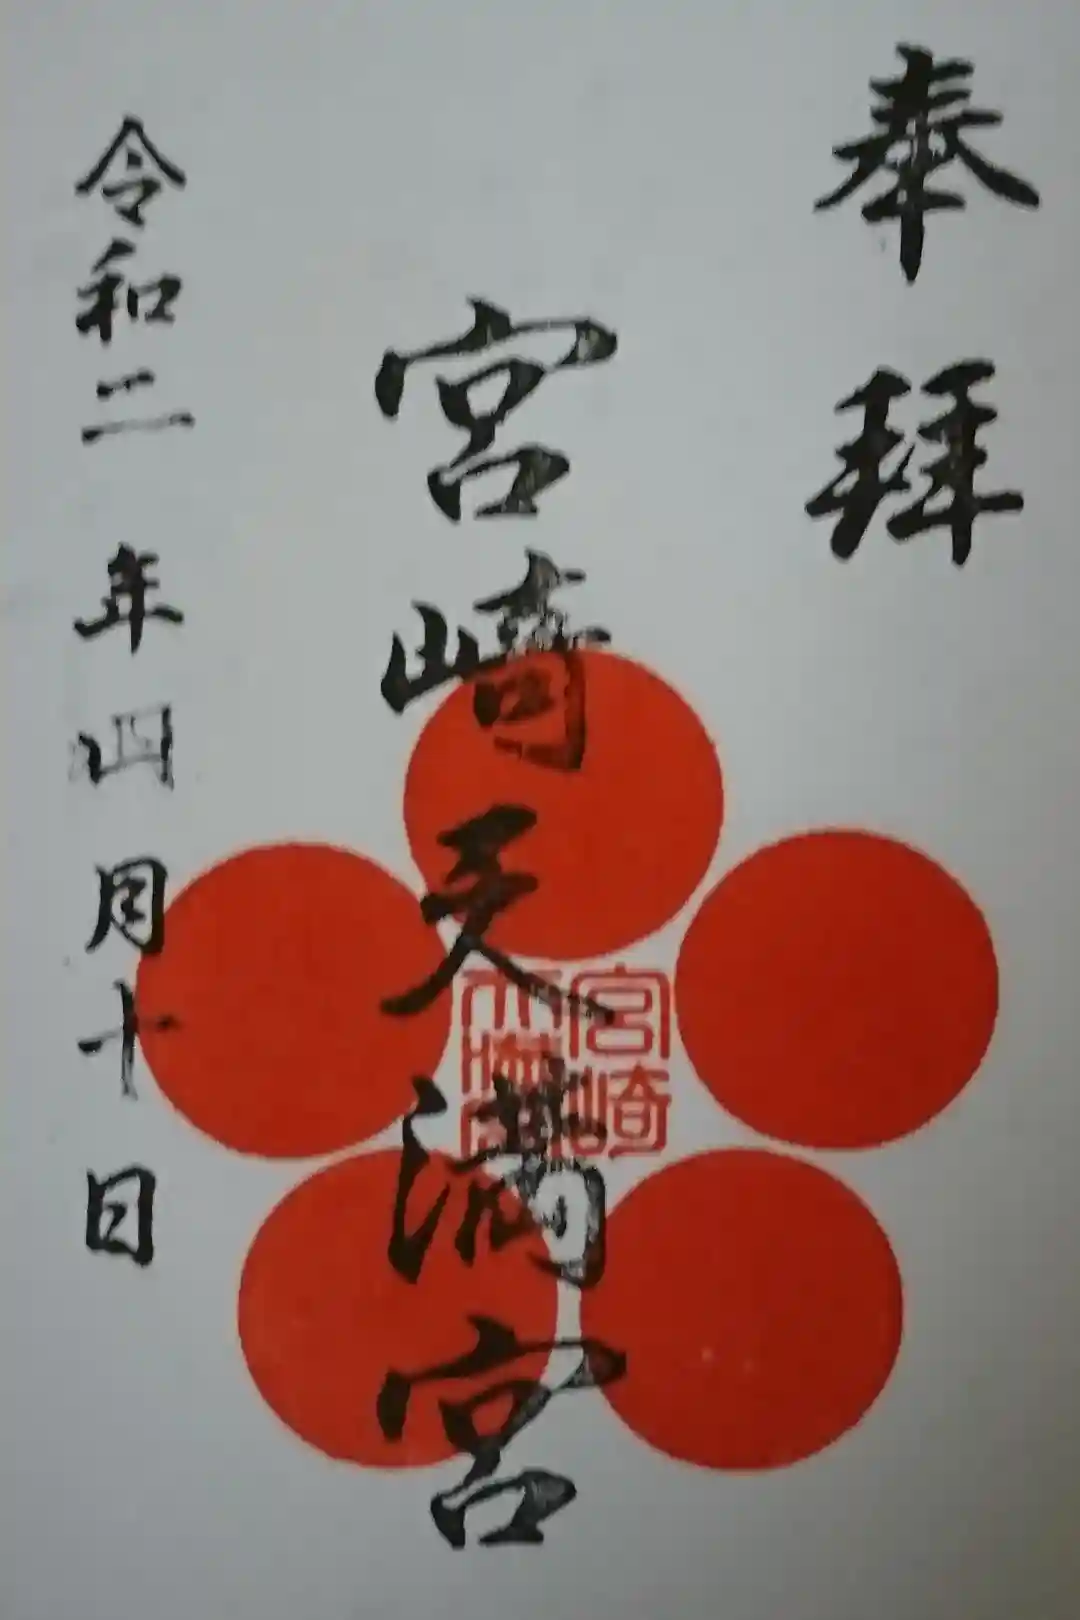 奉拝
宮崎天満宮
宮崎
天満宮
令和二年四月十日